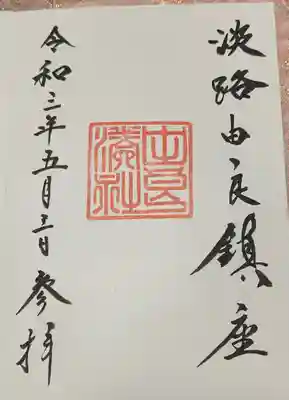 淡路由良鎮座
由良
湊社
令和三年五月三日参拝